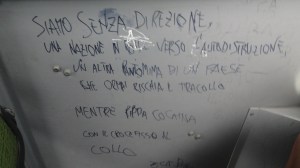 SIAMO SENZA DIREZIONE,
UNA NAZIONE IN VERSO L'AUTODISTRUZIONE,
UN ALTRA PANTOMIMA DI UN PAESE
CHE ORMAI RISCHIA IL TRACOLLO
MENTRE PIPPA COCAINA
CON IL CROCEFISSO AL
COLLO